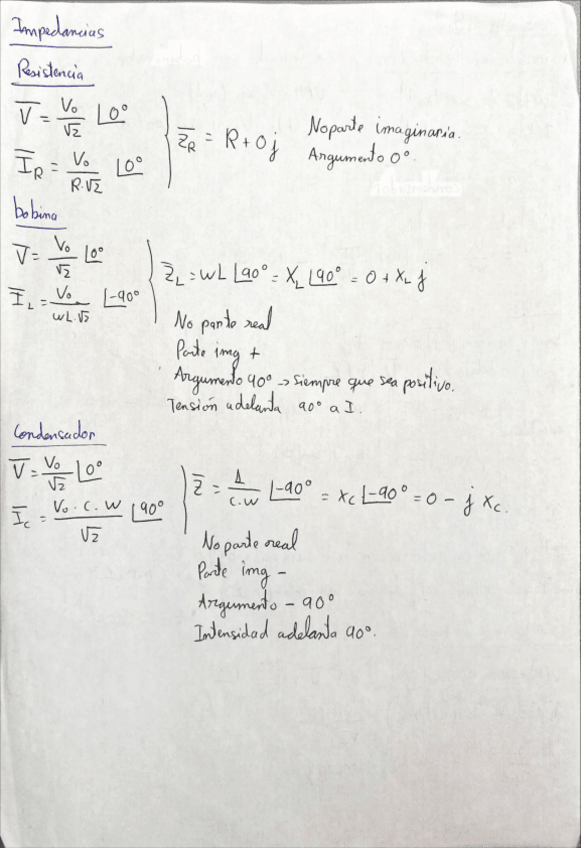 Impedancias
Resistencia
V̅ = V₀/√2 ∠0°
I̅_R = V₀/R·√2 ∠0°
Z̅_R = R + 0j
No parte imaginaria.
Argumento 0°.
bobina
V̅ = V₀/√2 ∠0°
I̅_L = V₀/wL·√2 ∠-90°
Z̅_L = wL ∠90° = X_L ∠90° = 0 + X_L j
No parte real
Parte img +
Argumento 90° → siempre que sea positivo.
Tensión adelanta 90° a I.
Condensador
V̅ = V₀/√2 ∠0°
I̅_C = V₀·C·W/√2 ∠90°
Z̅ = 1/C·W ∠-90° = X_C ∠-90° = 0 - j X_C.
No parte real
Parte img -
Argumento - 90°
Intensidad adelanta 90°.